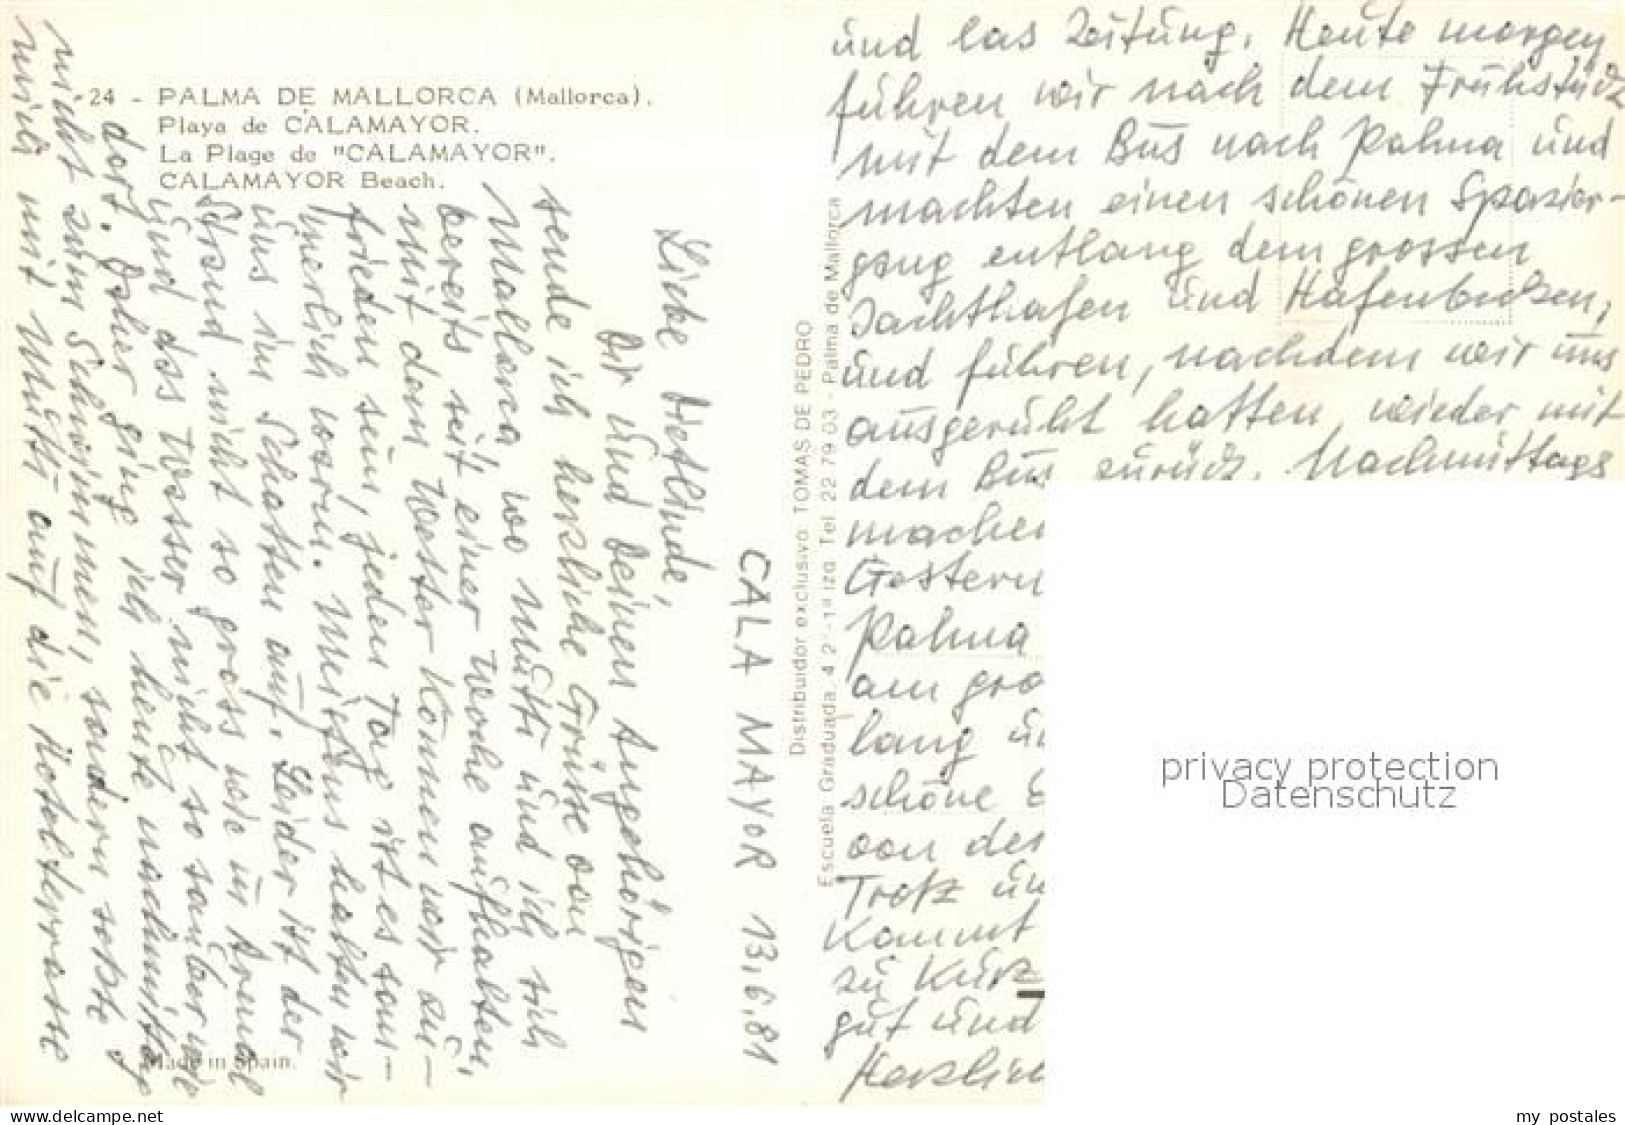 24 - PALMA DE MALLORCA (Mallorca).
Playa de CALAMAYOR.
La Plage de "CALAMAYOR".
CALAMAYOR Beach.
CALA MAYOR 13.6.81
Liebe Dietlinde,
Dir und Deinen Angehörigen
sende ich herzliche Grüsse von
Mallorca, wo Mutti und ich sich
bereits seit einer Woche aufhalten,
Mit dem Wetter können wir zu-
frieden sein, jeden Tag ist es som-
merlich warm. Meistens halten wir
uns im Schatten auf. Leider ist der
Strand nicht so gross wie in Arenal
und das Wasser nicht so sauber wie
dort. Daher ging ich heute nachmittag
nicht zum Schwimmen, sondern setzte
mich mit Mutti auf die Hotelterrasse
und las Zeitung. Heute morgen
fuhren wir nach dem Frühstück
mit dem Bus nach Palma und
machten einen schönen Spazier-
gang entlang dem grossen
Jachthafen und Hafenbecken,
und fuhren, nachdem wir uns
ausgeruht hatten, wieder mit
dem Bus zurück. Nachmittags
machen
Gestern
Palma
am gro
lang
schöne
von der
Trotz
kommt
zu kurz
gut und
Herzlich
Distribuidor exclusivo: TOMAS DE PEDRO
Escuela Graduada, 4 2° -1ª Izq. Tel. 22 79 03 - Palma de Mallorca
Made in Spain.
privacy protection
Datenschutz
www.delcampe.net
my_postales